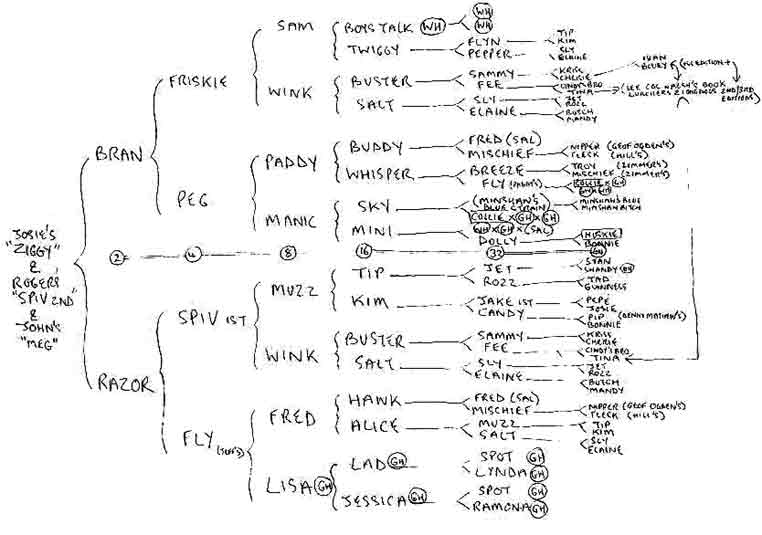 JOSIE'S
"ZIGGY"
&
ROGERS
"SPIV 2ND"
&
JOHN'S
"MEG"
BRAN
RAZOR
2
FRISKIE
PEG
4
SPIV 1ST
FLY
SAM
WINK
PADDY
MANIC
8
MUZZ
WINK
FRED
LISA GH
BOYS TALK WH
TWIGGY
BUSTER
SALT
BUDDY
WHISPER
SKY
MINI
16
TIP
KIM
BUSTER
SALT
HAWK
ALICE
LAD GH
JESSICA GH
WH
WH
FLYN
PEPPER
SAMMY
FEE
SLY
ELAINE
FRED (SAL)
MISCHIEF
BREEZE
FLY
(MINSHAN'S
BLUE STRAIN)
COLLIE X GH X GH
WH X GH X (SAL)
DOLLY
32
JET
ROZZ
JAKE 1ST
CANDY
SAMMY
FEE
SLY
ELAINE
FRED (SAL)
MISCHIEF
MUZZ
SALT
SPOT GH
LYNDA GH
SPOT GH
RAMONA GH
TIP
KIM
SLY
ELAINE
KRISE
CHERIE
CINDY'S BRO
TINA
JET
ROZZ
BUTCH
MANDY
NIPPER (GEOF OGDEN'S)
FLECK (HILL'S)
TROY (ZIMMER'S)
MISCHIEF (ZIMMER'S)
COLLIE X GH
MINSHAN'S BLUE
MINSHAN BITCH
HUSKIE
BONNIE
GH
STAN
SHANDY GH
TAD
GUINNESS
PEPE
JOSIE
PIP
BONNIE
KRISE
CHERIE
CINDY'S BRO
TINA
JET
ROZZ
BUTCH
MANDY
NIPPER (GEOF OGDEN'S)
FLECK (HILL'S)
TIP
KIM
SLY
ELAINE
IVAN
BLUEY
(SEE COL WALSH'S BOOK
LURCHERS & LONGDOGS 2ND/3RD
EDITIONS)